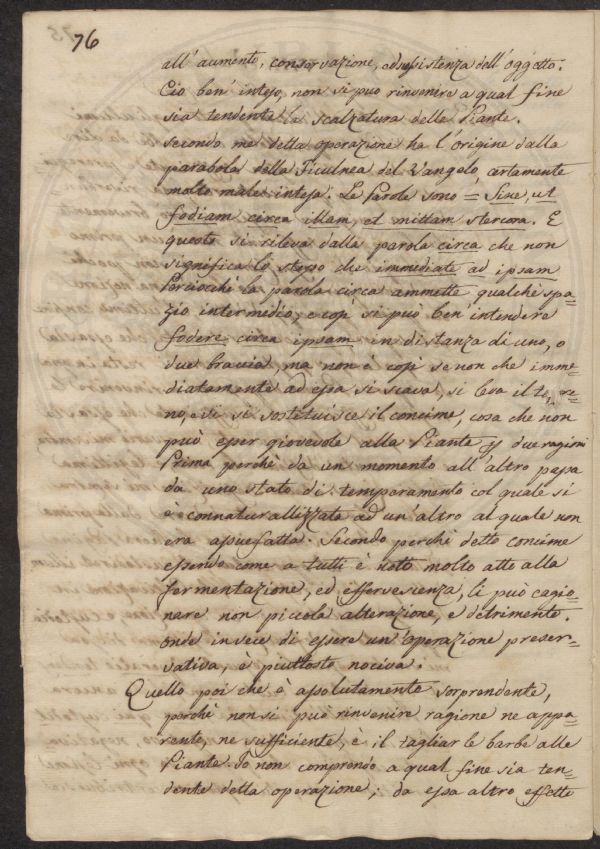 76
all' aumento, conservazione, e sussistenza dell' oggetto.
Ciò ben' inteso, non si può rinvenire a qual fine
sia tendente la scalzatura delle Piante.
Secondo me detta operazione ha l'origine dalla
parabola della Ficulnea del Vangelo, certamente
molto male intesa. Le parole sono = Sine, ut
fodiam circa illam, et mittam stercora. E
questo si rileva dalla parola circa che non
significa lo stesso che immediate ad ipsam
Perciocchè la parola circa ammette qualche spa=
zio intermedio, e così si può ben intendere
fodere circa ipsam in distanza di uno, o
due braccia, ma non è così se non che imme=
diatamente ad essa si scava, si leva il te re=
no, e si sostituisce il concime, cosa che non
può esser giovevole alla Piante p due ragioni
Prima perchè da un momento all' altro passa
da uno stato di temperamento col quale si
e connaturallizzata ad un' altro al quale non
era assuefatta. Secondo perchè detto concime
essendo come a tutti è noto molto atto alla
fermentazione, ed effervescienza, li può cagio=
nare non piccola alterazione, e detrimento.
onde invece di essere un' operazione preser=
vativa, è piuttosto nociva.
Quello poi che è assolutamente sorprendente,
perchè non si può rinvenire ragione ne appa=
rente, ne sufficiente, è il tagliar le barbe alle
Piante. Io non comprendo a qual fine sia ten=
dente detta operazione; da essa altro effetto